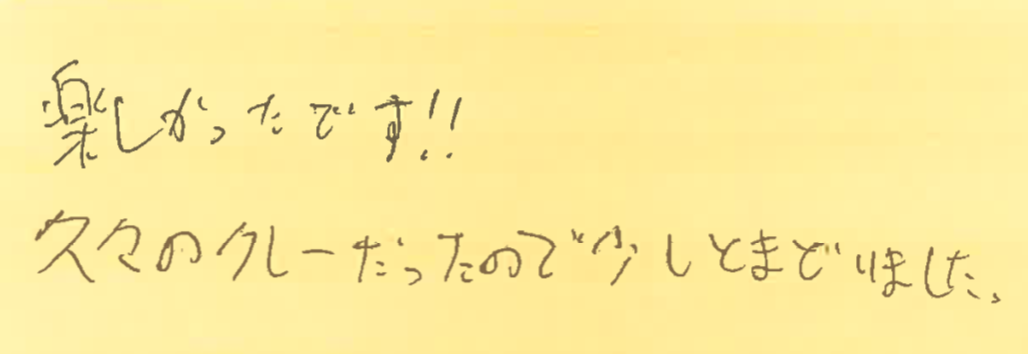 楽しかったです!!
久々のクレーだったので少しとまどいました。